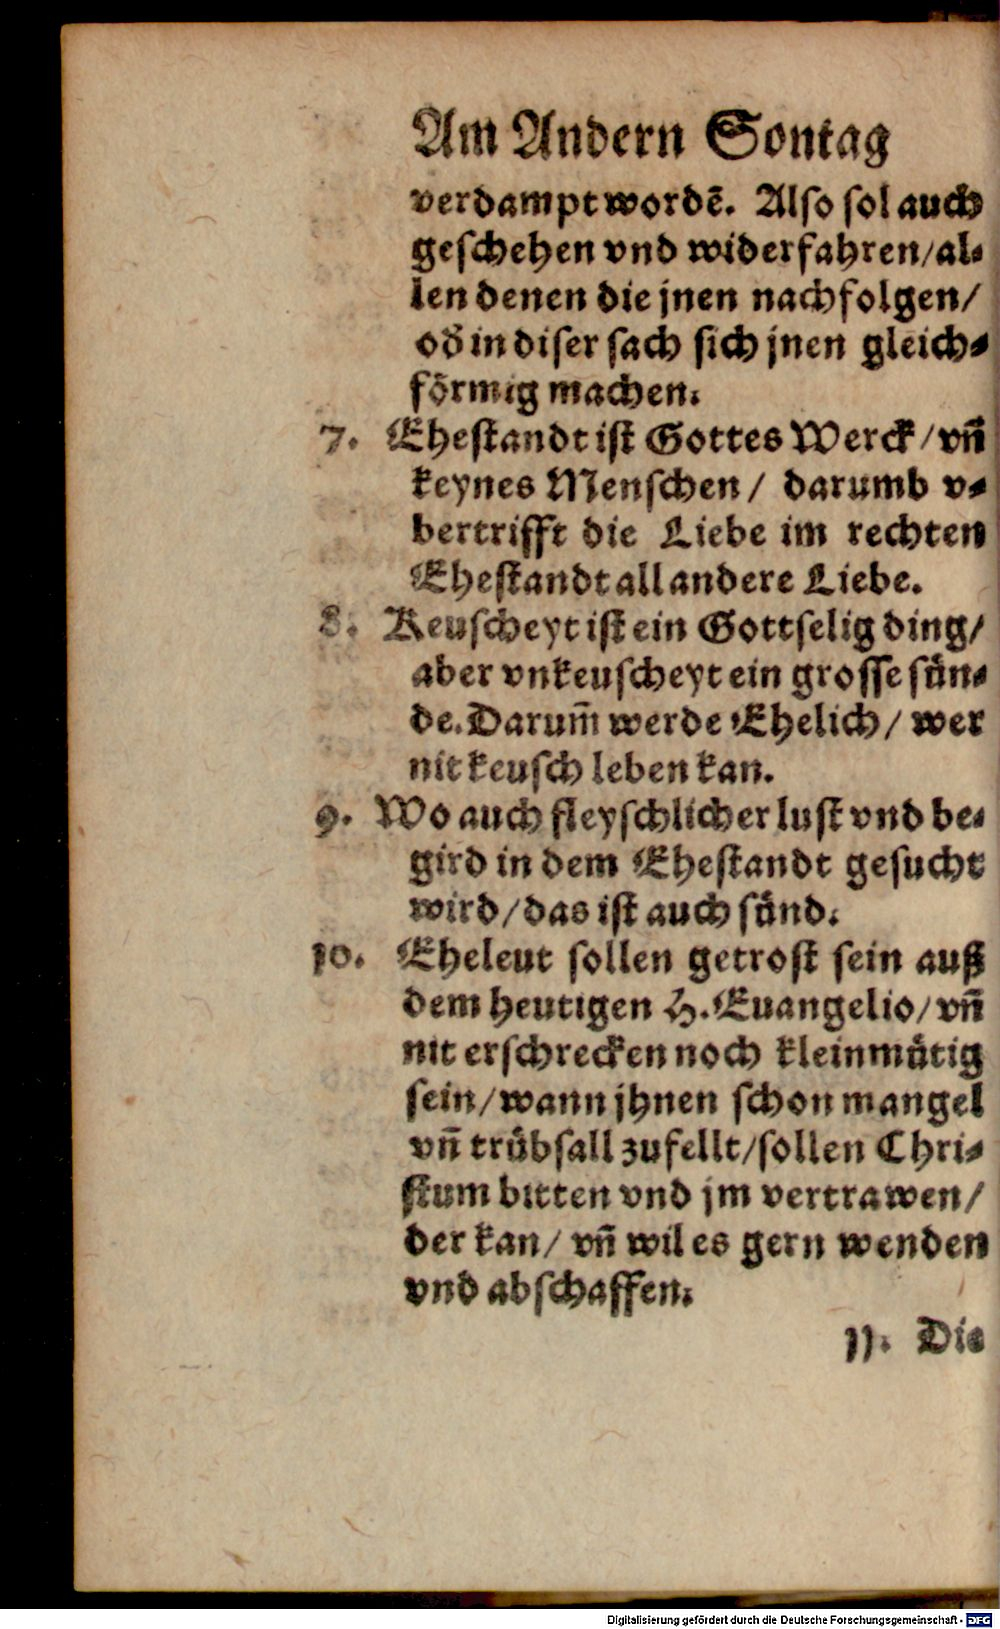 Am Andern Sontag
verdampt wordē. Also sol auch
geschehen vnd widerfahren/al-
len denen die jnen nachfolgen/
od̄ in diser sach sich jnen gleich-
förmig machen.
7. Ehestandt ist Gottes Werck/vn̄
keynes Menschen/ darumb v-
bertrifft die Liebe im rechten
Ehestandt all andere Liebe.
8. Keuscheyt ist ein Gottselig ding/
aber vnkeuscheyt ein grosse sün-
de. Darum̄ werde Ehelich/ wer
nit keusch leben kan.
9. Wo auch fleyschlicher lust vnd be-
gird in dem Ehestandt gesucht
wird/das ist auch sünd.
10. Eheleut sollen getrost sein auß
dem heutigen H. Euangelio/vn̄
nit erschrecken noch kleinmütig
sein/wann jhnen schon mangel
vn̄ trübsall zufellt/sollen Chri-
stum bitten vnd jm vertrawen/
der kan/ vn̄ wil es gern wenden
vnd abschaffen.
11. Die
Digitalisierung gefördert durch die Deutsche Forschungsgemeinschaft - DFG